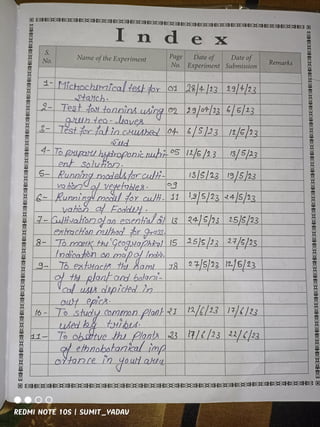 Index
S. No. Name of the Experiment Page No. Date of Experiment Date of Submission Remarks
1- Michochemical test for 01 28/4/23 29/4/23
starch.
2- Test for tannins using 02 29/04/23 6/5/23
green tea-leaves
3- Test for fat in crushed 04 6/5/23 12/5/23
seed
4- To prepare hydroponic nutri- 05 12/5/23 13/5/23
ent solution.
5- Running models for culti- 13/5/23 19/5/23
vation of vegetables. 09
6- Running model for culti- 11 19/5/23 24/5/23
vation of Fodder.
7- Cultivation of an essential oil 13 24/5/23 25/5/23
extraction method for grass.
8- To mark the Geographical 15 25/5/23 27/5/23
Indication on map of India.
9- To extracte the name 18 27/5/23 12/5/23
of the plant and botani-
cal uses depicted in
our epics.
10- To study common plant 21 12/6/23 17/6/23
used by tribes.
11- To observe the plants 23 17/6/23 22/6/23
of ethnobotanical imp
ortance in your area
REDMI NOTE 10S | SUMIT_YADAV